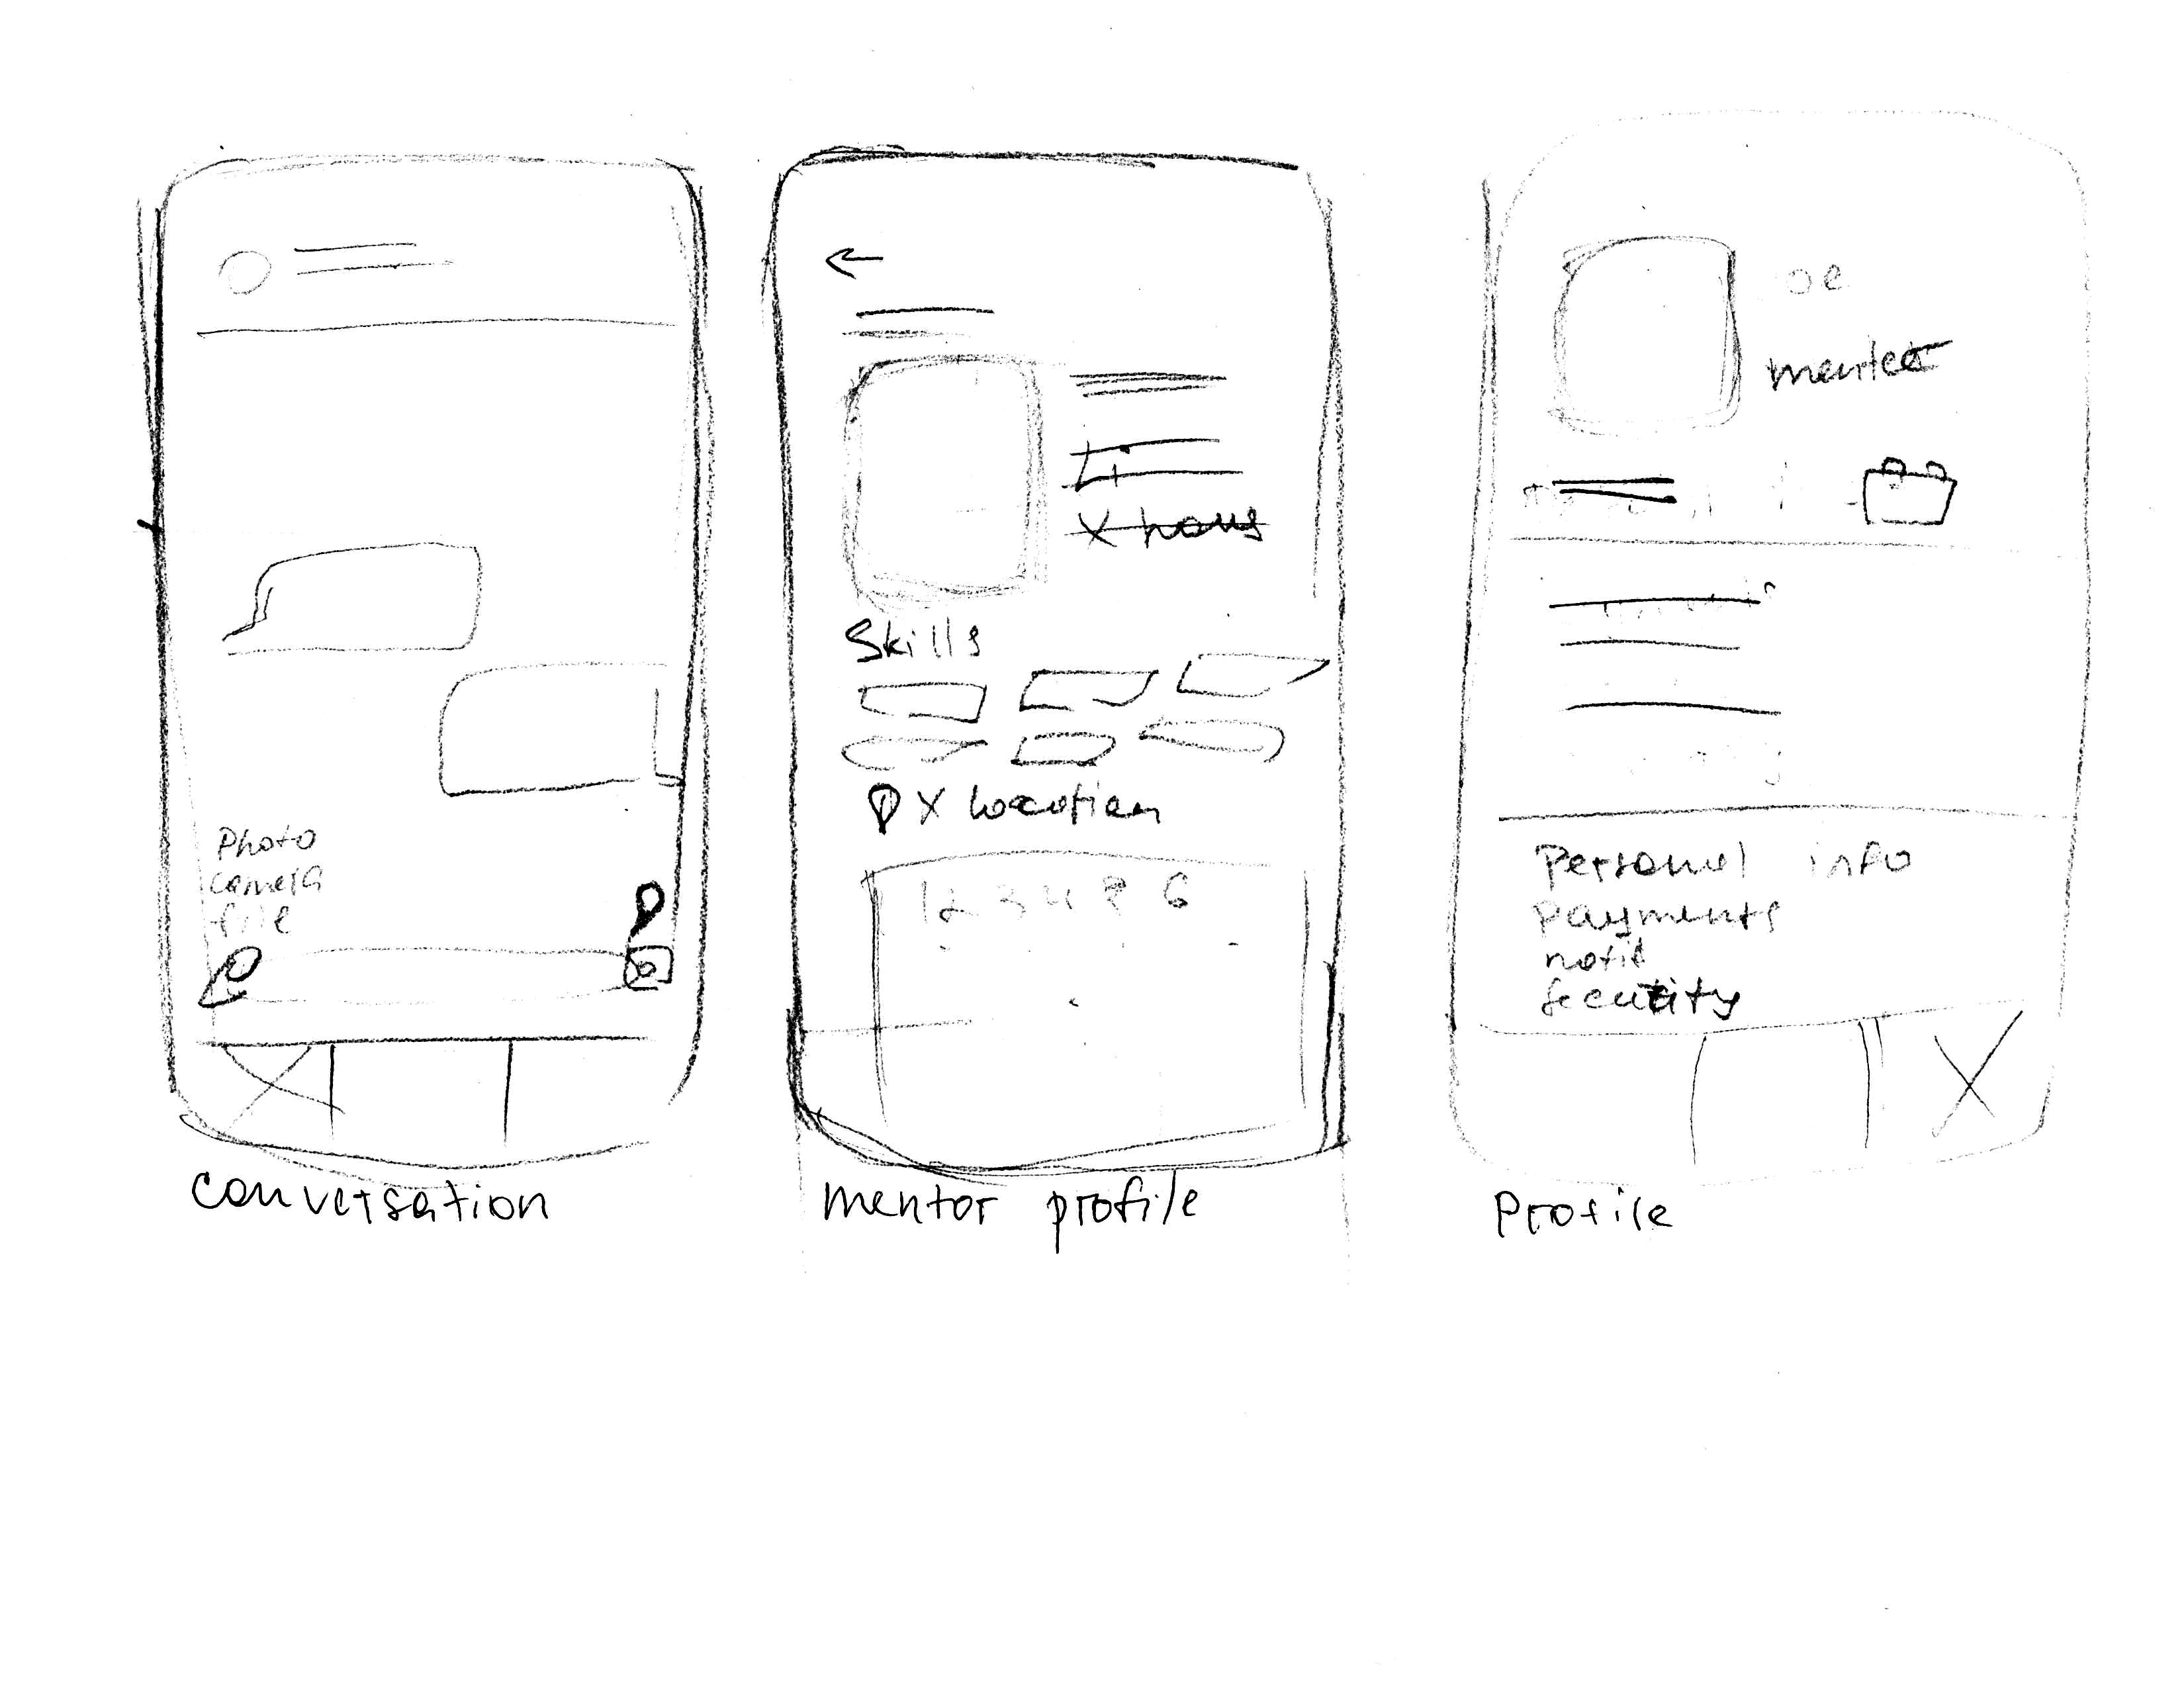 Photo
camera
file
conversation
Skills
X location
mentor profile
mentee
Personal info
payments
notif
security
Profile